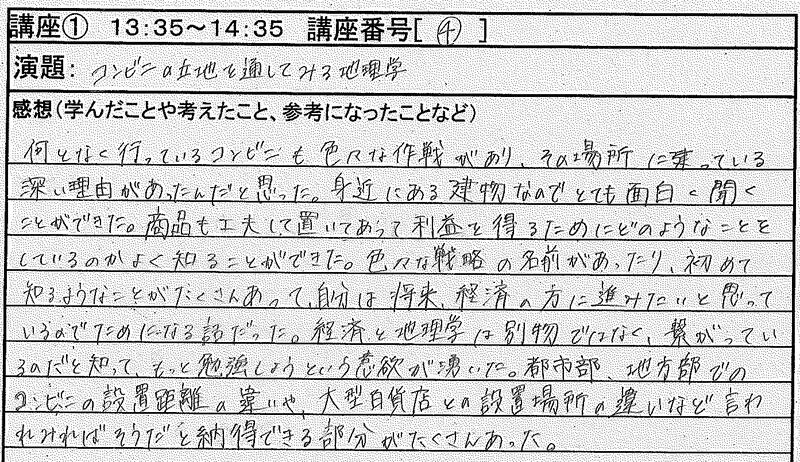 講座① 13:35～14:35 講座番号[ ④ ]
演題: コンビニの立地を通してみる地理学
感想(学んだことや考えたこと、参考になったことなど)
何となく行っているコンビニも色々な作戦があり、その場所に建っている
深い理由があったんだと思った。身近にある建物なのでとても面白く聞く
ことができた。商品も工夫して置いてあって利益を得るためにどのようなことを
しているのかよく知ることができた。色々な戦略の名前があったり、初めて
知るようなことがたくさんあって、自分は将来、経済の方に進みたいと思って
いるのでためになる話だった。経済と地理学は別物ではなく、繋がってい
るのだと知って、もっと勉強しようという意欲が湧いた。都市部、地方部での
コンビニの設置距離の違いや、大型百貨店との設置場所の違いなど言わ
れみればそうだと納得できる部分がたくさんあった。